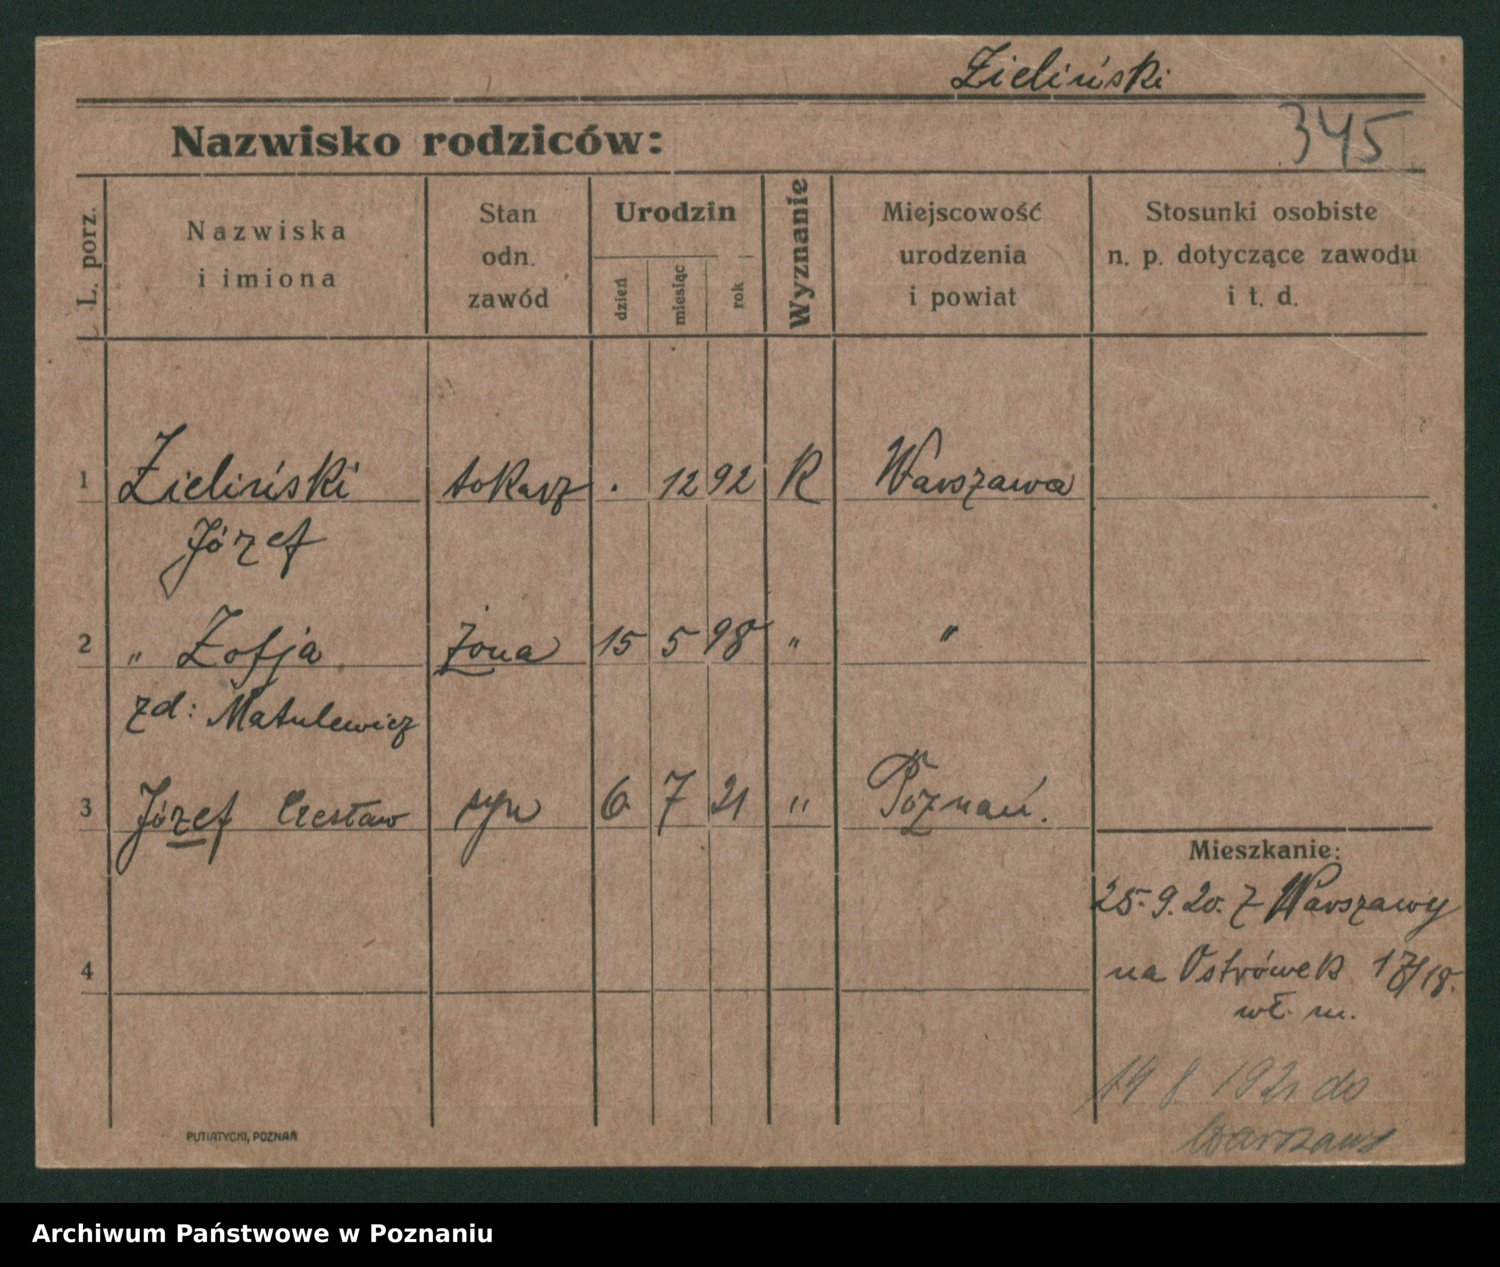 Zieliński
345
Nazwisko rodziców:
L. porz.
Nazwiska
i imiona
Stan
odn.
zawód
Urodzin
dzień
miesiąc
rok
Wyznanie
Miejscowość
urodzenia
i powiat
Stosunki osobiste
n. p. dotyczące zawodu
i t. d.
1 Zieliński tokarz . 12 92 R Warszawa
Józef
2 " Zofja żona 15 5 98 " "
zd: Matulewicz
3 Józef Czesław syn 6 7 21 " Poznań.
Mieszkanie:
25.9.20. z Warszawy
4
na Ostrówek 17/18.
wł. m.
14 8 1921 do
Warszawy
PUTIATYCKI, POZNAŃ
Archiwum Państwowe w Poznaniu